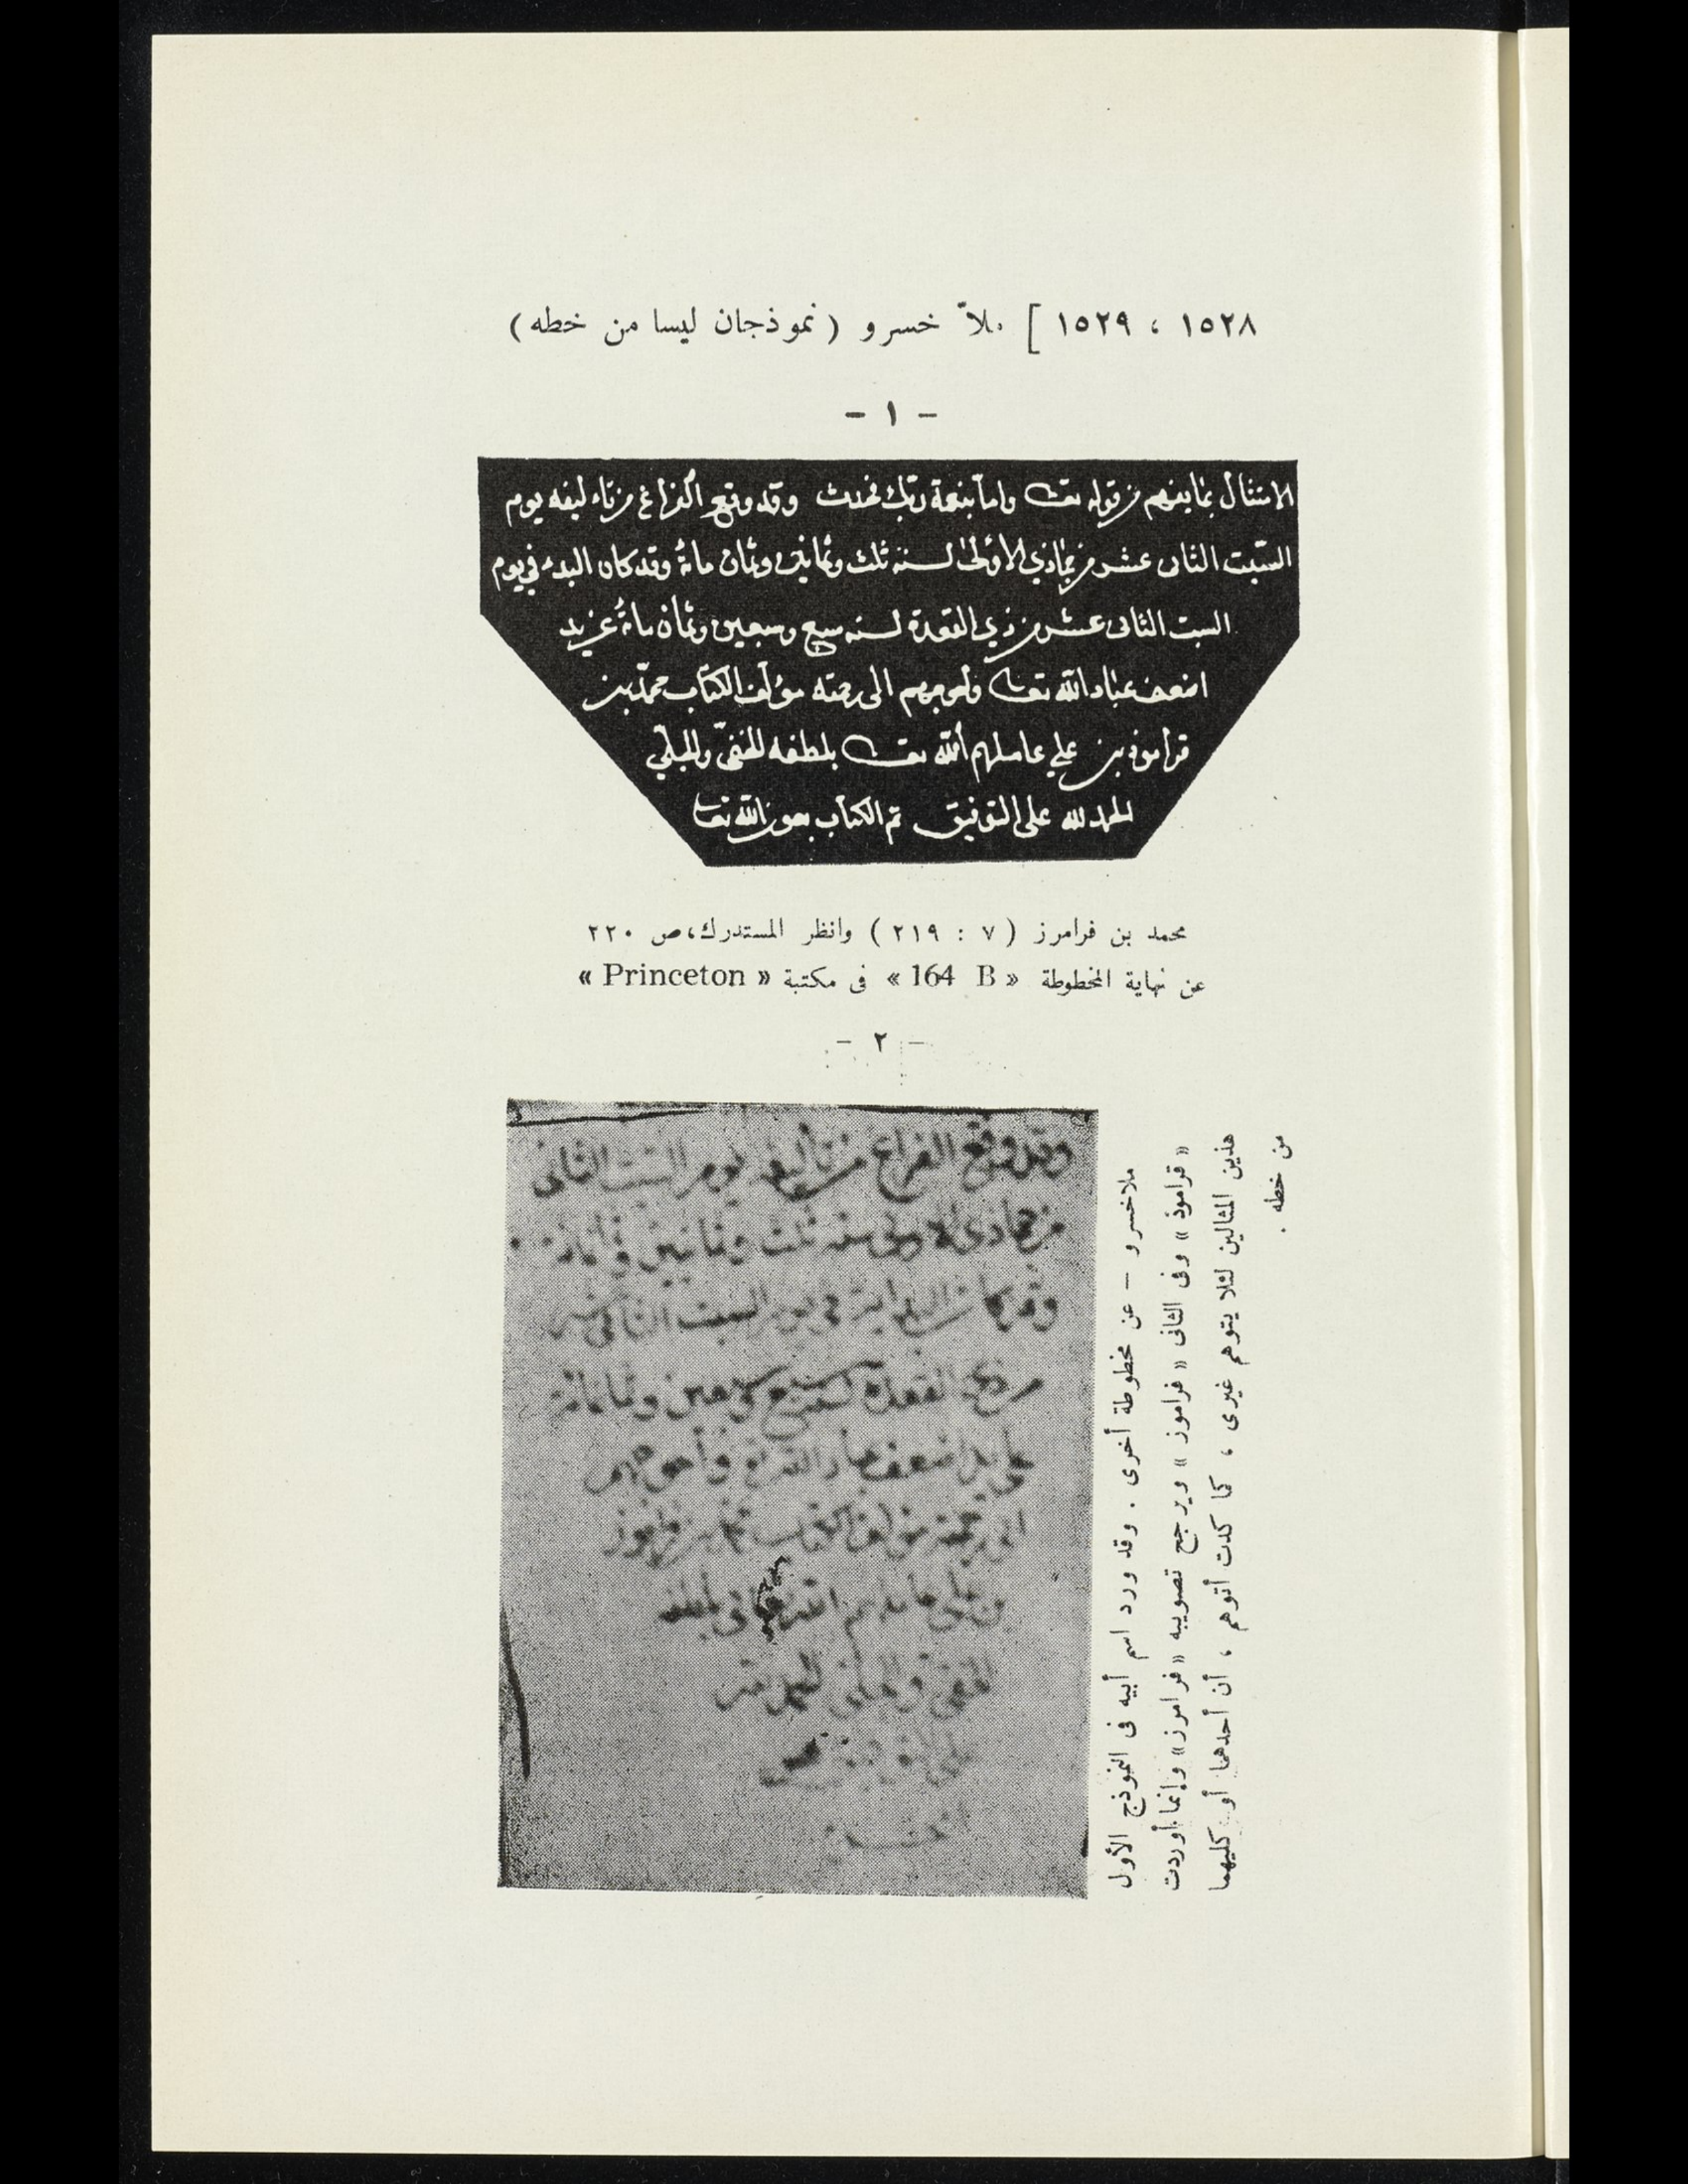 ١٥٢٨ ، ١٥٢٩ ] ملاّ خسرو ( نموذجان ليسا من خطه )
- ١ -
الامتثال بما يفهم من قوله تعـ واما بنعمة ربك فحدث وقد وقع الفراغ من تاءليفه يوم
السّبت الثانى عشر من جمادي الأولى لسنة ثلث وثمانين وثمان مائة وقد كان البدء في يوم
السبت الثانى عشر من ذي القعدة لسنة سبع وسبعين وثمان مائة عن يد
اضعف عباد الله تعا واحوجهم الى رحمته مؤلف الكتاب محمد بن
قراموذ بن علي عاملهم الله تعـ بلطفه الخفيّ والجليّ
الحمد لله على التوفيق تم الكتاب بعون الله تعا
محمد بن فرامرز ( ٧ : ٢١٩ ) وانظر المستدرك، ص ٢٢٠
عن نهاية المخطوطة « 164 B » فى مكتبة « Princeton »
- ٢ -
وقد وقع الفراغ من تأليفه يوم السبت الثانى
من جمادى الاولى سنه ثلث وثمانين وثمانمائة
وقد كان فى يوم السبت الثانى عشر
من ذى القعدة لسنة سبع وسبعين وثمانمائة
على يد اضعف عباد الله وأحوجهم
الى رحمته مؤلف الكتاب محمد بن فراموز
بن على عاملهم الله تعالى بلطفه
الخفى والجلى الحمد لله
على
ملاخسرو — عن مخطوطة أخرى . وقد ورد اسم أبيه فى النموذج الأول
« قراموذ » وفى الثانى « فراموز » ويرجح تصويبه « فرامرز » وإنما أوردت
هذين المثالين لئلا يتوهم غيرى ، كما كدت أتوهم ، أن أحدهما أو كليهما
من خطه .